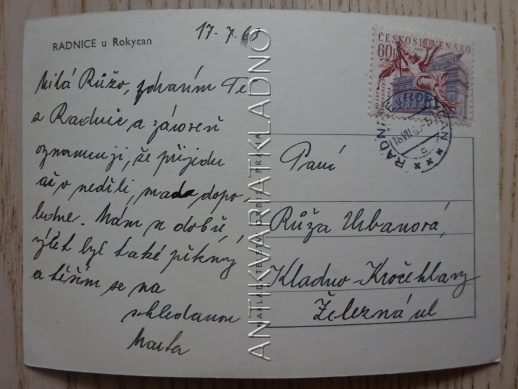 RADNICE u Rokycan
17-7.65
60h
ČESKOSLOVENSKO
Milá Růžo, zdravím Tě
z Radnic a zároveň
oznamuji, že přijedu
až v neděli, dopo-
ledne. Mám se dobře,
výlet byl také pěkný
a těším se na
shledanou
Marta
ANTIKVARIATKLADNO
Paní
Růža Urbanová,
Kladno-Kročehlavy
Železná ul